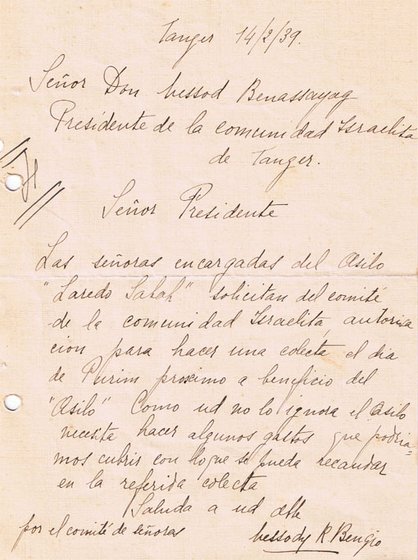 Tanger 14/2/39.
Señor Don Messod Benassayag
Presidente de la comunidad Israelita
de Tanger.
Señor Presidente
Las señoras encargadas del Asilo
"Laredo Sabah" solicitan del comité
de la comunidad Israelita, autoriza
cion para hacer una colecta el dia
de Purim proximo a beneficio del
"Asilo" Como ud no lo ignora el Asilo
necesita hacer algunos gastos que podria-
mos cubrir con lo que se pueda recaudar
en la referida colecta
Saluda a ud
por el comité de señoras
Messody R. Bengio